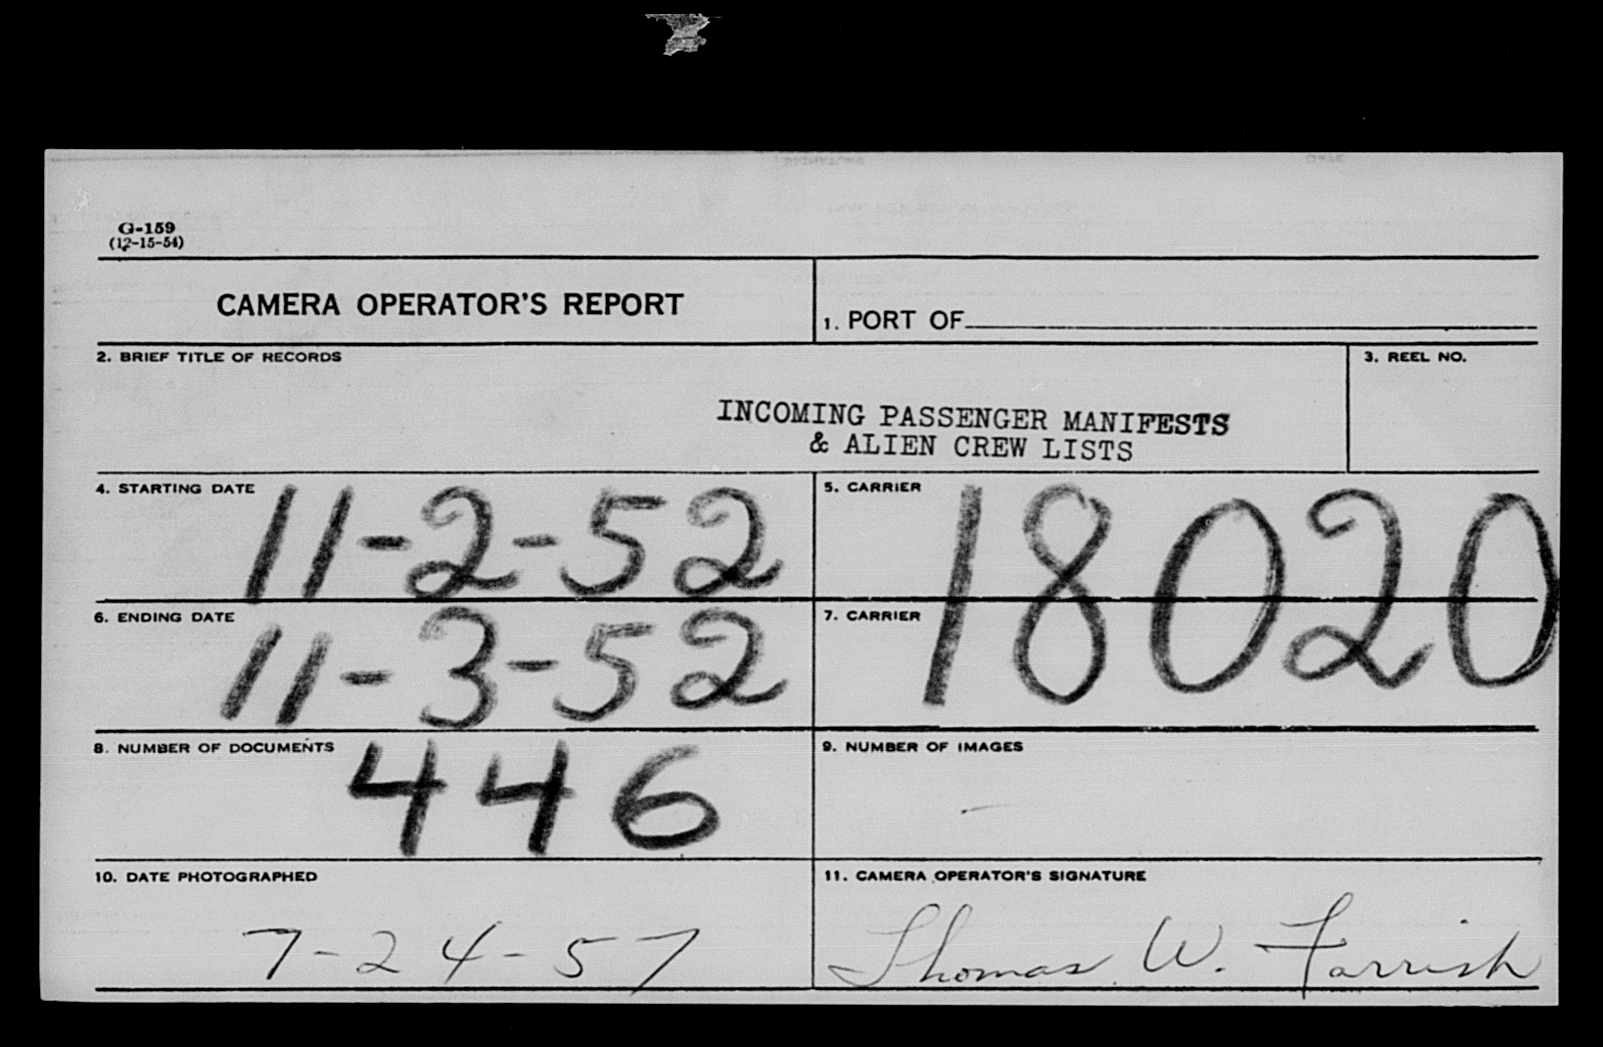 G-159
(12-15-54)
CAMERA OPERATOR'S REPORT
1. PORT OF
2. BRIEF TITLE OF RECORDS
3. REEL NO.
INCOMING PASSENGER MANIFESTS
& ALIEN CREW LISTS
4. STARTING DATE
11-2-52
5. CARRIER
18020
6. ENDING DATE
11-3-52
7. CARRIER
8. NUMBER OF DOCUMENTS
446
9. NUMBER OF IMAGES
10. DATE PHOTOGRAPHED
7-24-57
11. CAMERA OPERATOR'S SIGNATURE
Thomas W. Farrish